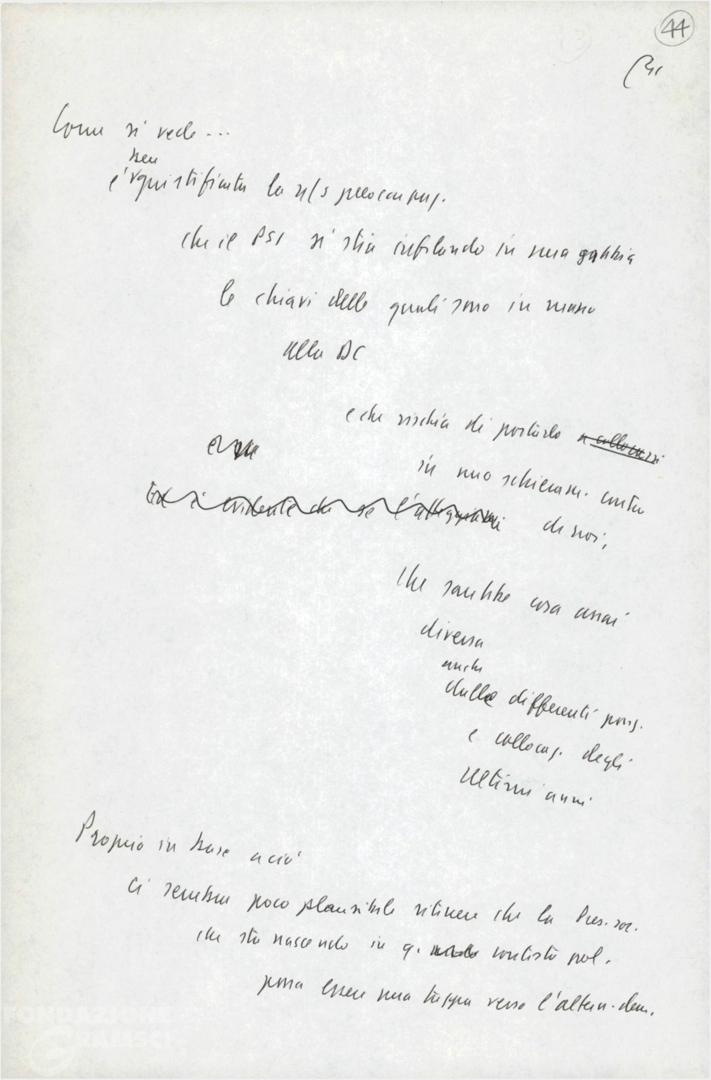 44
Come si vede...
ben
è giustificata la n/s preoccupaz.
che il PSI si stia infilando in una gabbia
le chiavi delle quali sono in mano
alla DC
e che rischia di portarlo a collocarsi
in uno schieram. contro
di noi,
Ed è evidente che se l'atteggiam
che sarebbe cosa assai
diversa
anche
dalle differenti posiz.
e collocaz. degli
ultimi anni
Proprio in base a ciò
ci sembra poco plausibile ritenere che la Pres. soc.
che sta nascendo in q. contesto pol.
possa essere una tappa verso l'altern. dem.
FONDAZIONE
GRAMSCI